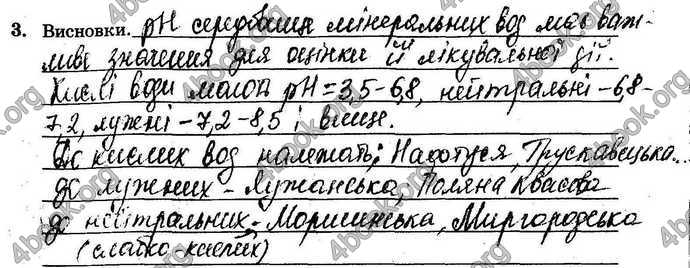 3. Висновки. pH середовища мінеральних вод має важ-
ливе значення для оцінки її лікувальної дії.
Кислі води мають pH = 3,5-6,8, нейтральні - 6,8-
7,2, лужні - 7,2-8,5 і вище.
До кислих вод належать: Нафтуся, Трускавецька...
до лужних - Лужанська, Поляна Квасова
до нейтральних - Моршинська, Миргородська
(слабко-кислих)
4book.org